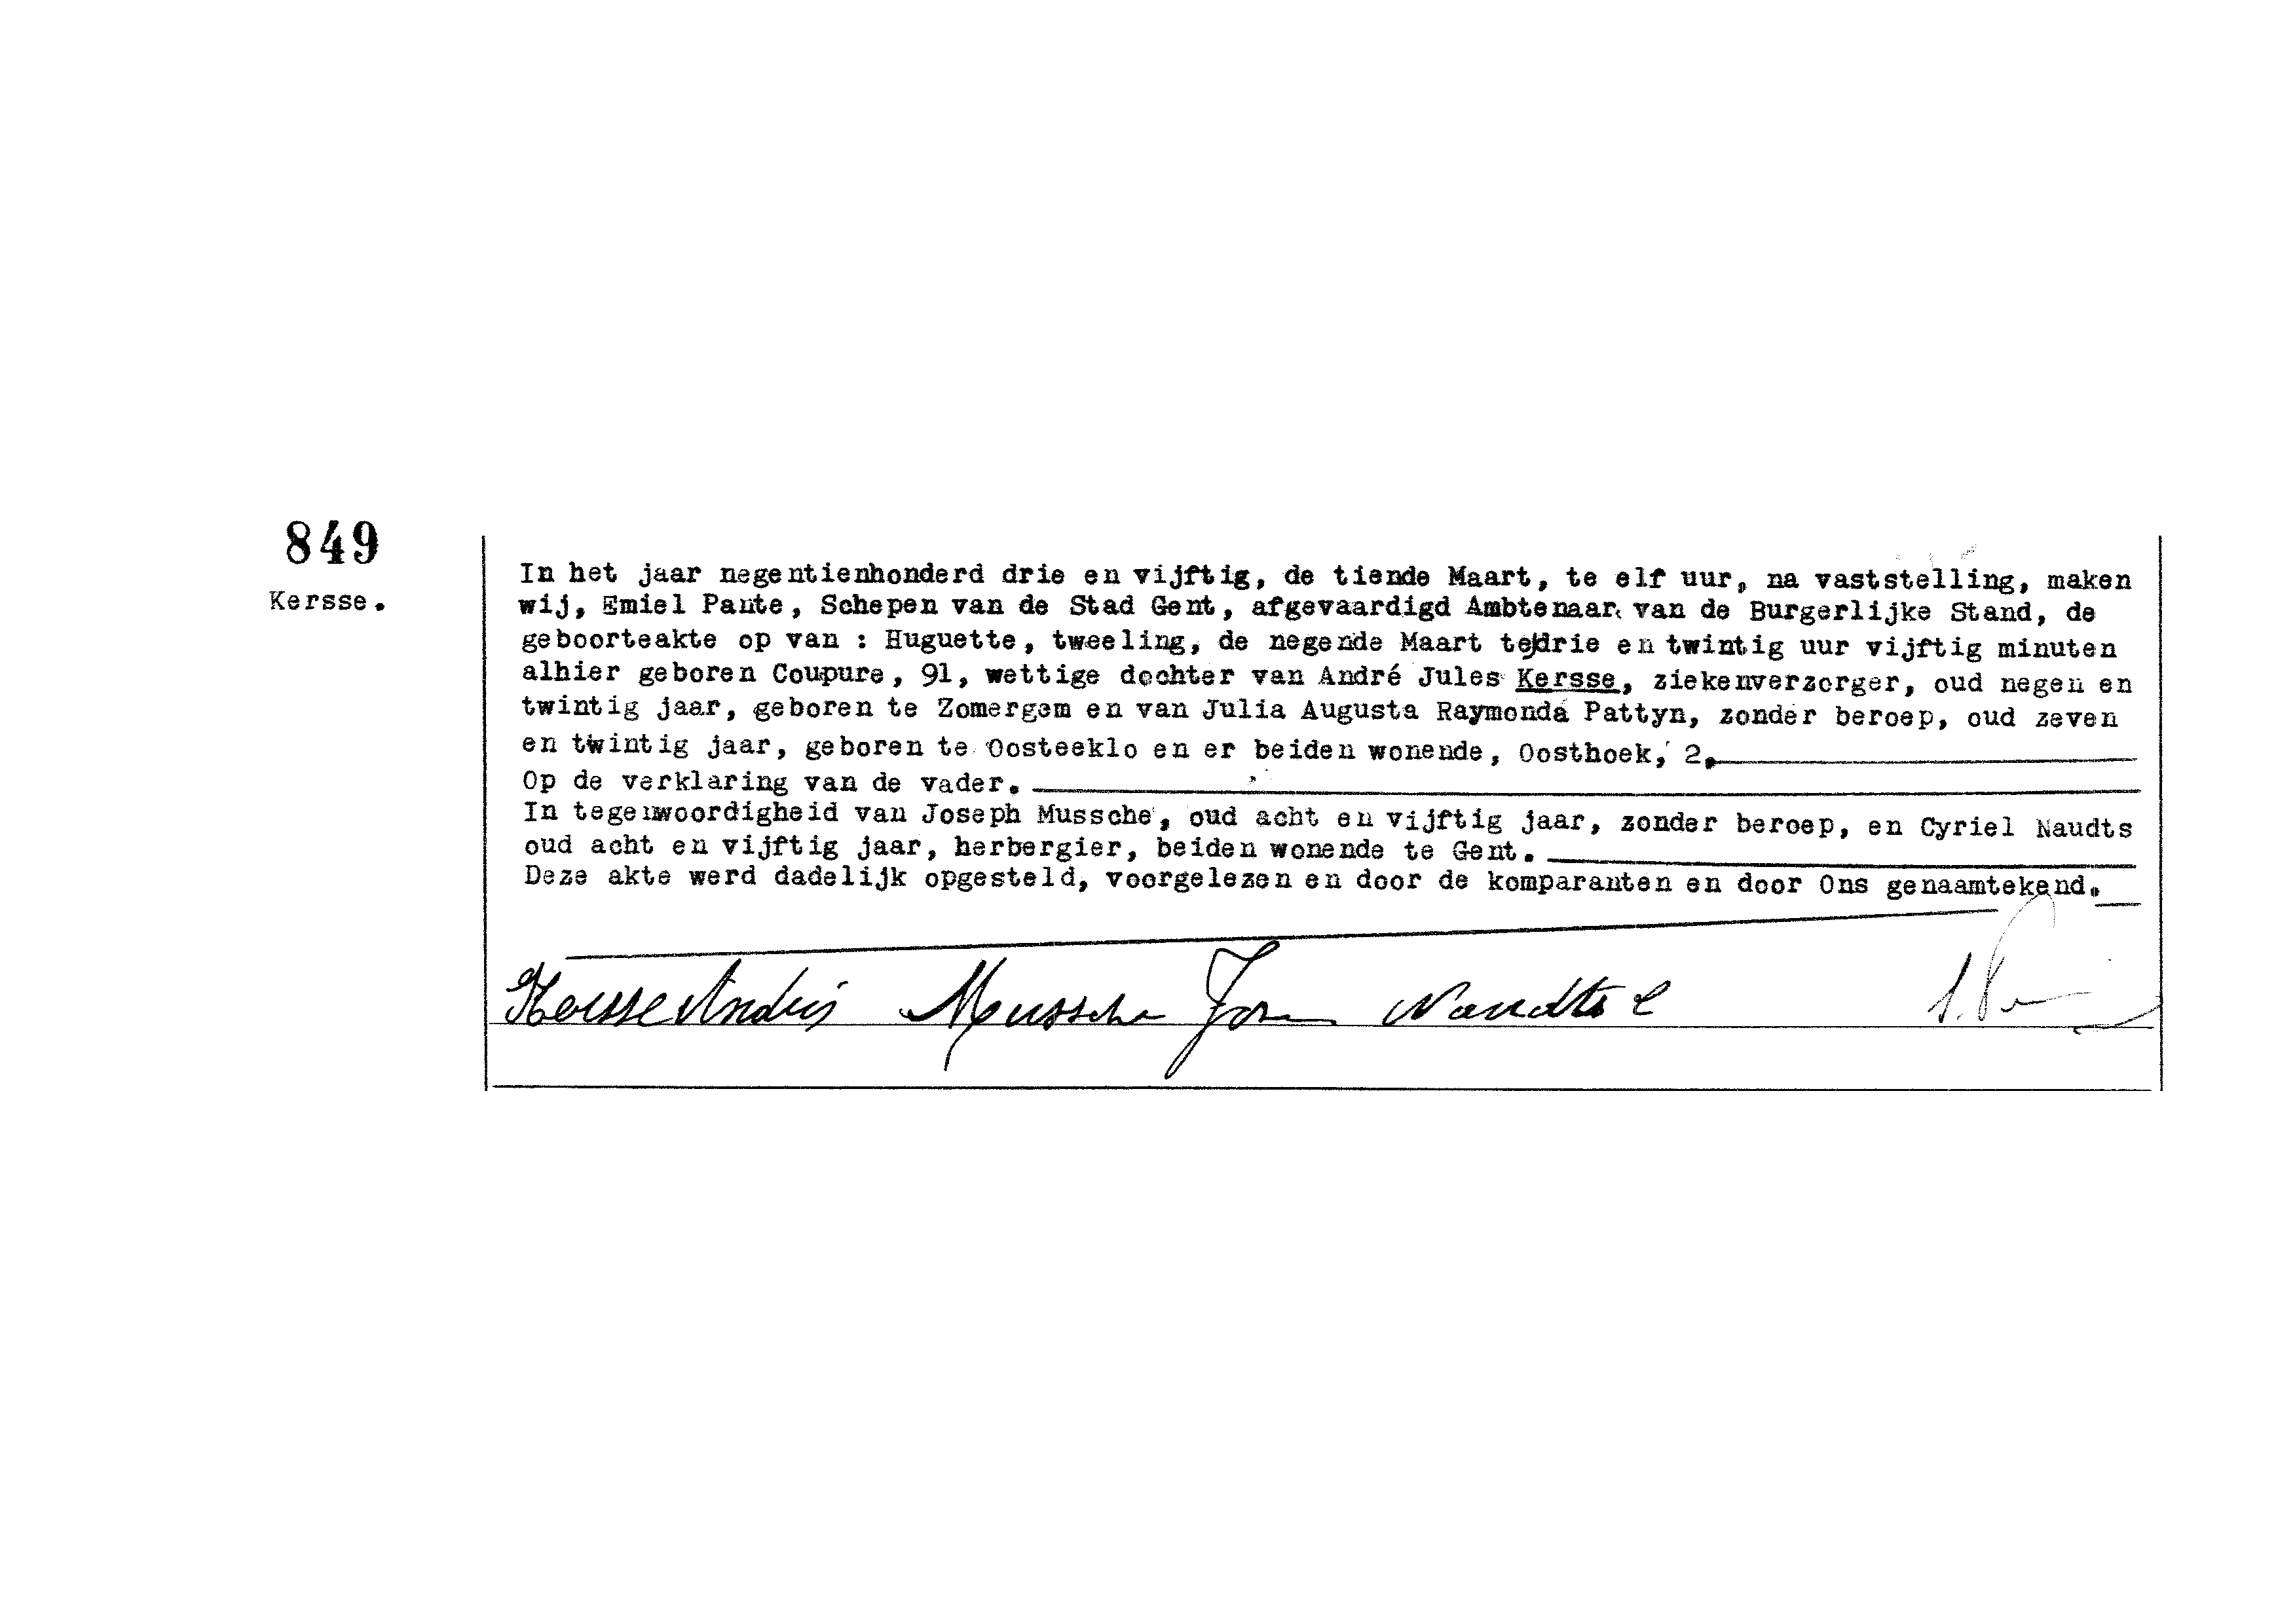 849
Kersse.
In het jaar negentienhonderd drie en vijftig, de tiende Maart, te elf uur, na vaststelling, maken
wij, Emiel Pante, Schepen van de Stad Gent, afgevaardigd Ambtenaar van de Burgerlijke Stand, de
geboorteakte op van : Huguette, tweeling, de negende Maart te drie en twintig uur vijftig minuten
alhier geboren Coupure, 91, wettige dochter van André Jules Kersse, ziekenverzorger, oud negen en
twintig jaar, geboren te Zomergem en van Julia Augusta Raymonda Pattyn, zonder beroep, oud zeven
en twintig jaar, geboren te Oosteeklo en er beiden wonende, Oosthoek, 2,
Op de verklaring van de vader.
In tegenwoordigheid van Joseph Mussche, oud acht en vijftig jaar, zonder beroep, en Cyriel Naudts
oud acht en vijftig jaar, herbergier, beiden wonende te Gent.
Deze akte werd dadelijk opgesteld, voorgelezen en door de komparanten en door Ons genaamtekend.
Kersse André Mussche Jos Naudts C